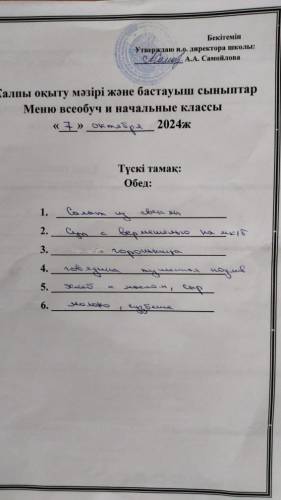 Бекітемін
Утверждаю и.о. директора школы:
А.А. Самойлова
Жалпы оқыту мәзірі және бастауыш сыныптар
Меню всеобуч и начальные классы
« 7 » октября 2024ж
Түскі тамақ:
Обед:
1. Салат из свеклы
2. Суп с вермешелью на м/б
3. горошница
4. говядина тушенная подлив
5. хлеб с маслом, сыр
6. молоко,